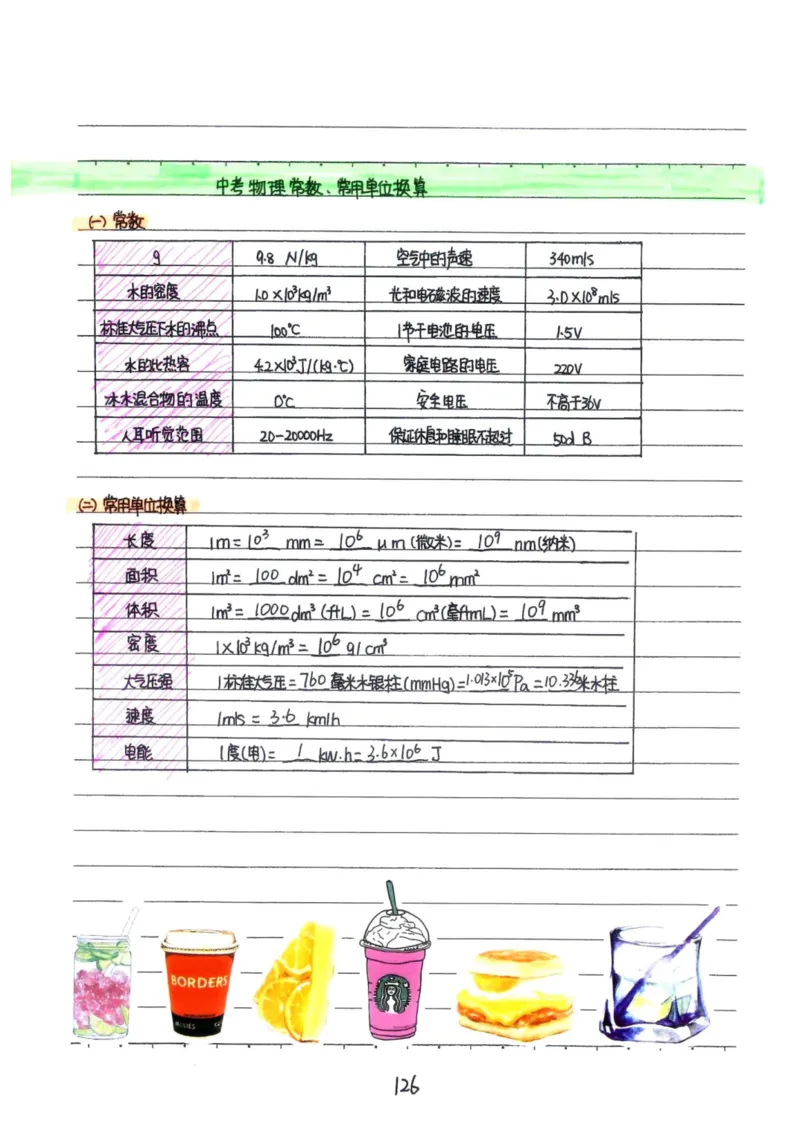 中考物理常数、常用单位换算
(一) 常数
g 9.8 N/kg 空气中的声速 340m/s
水的密度 1.0×10³kg/m³ 光和电磁波的速度 3.0×10⁸m/s
标准大气压下水的沸点 100℃ 1节干电池的电压 1.5V
水的比热容 4.2×10³J/(kg·℃) 家庭电路的电压 220V
冰水混合物的温度 0℃ 安全电压 不高于36V
人耳听觉范围 20-20000Hz 保证休息和睡眠不超过 50dB
(二) 常用单位换算
长度 1m=10³ mm=10⁶ μm(微米)=10⁹ nm(纳米)
面积 1m²=100 dm²=10⁴ cm²=10⁶ mm²
体积 1m³=1000dm³(升L)=10⁶ cm³(毫升mL)=10⁹ mm³
密度 1×10³kg/m³=10⁶ g/cm³
大气压强 1标准大气压=760毫米水银柱(mmHg)=1.013×10⁵Pa=10.336米水柱
速度 1m/s=3.6 km/h
电能 1度(电)=1 kw.h=3.6×10⁶ J
BORDERS
126